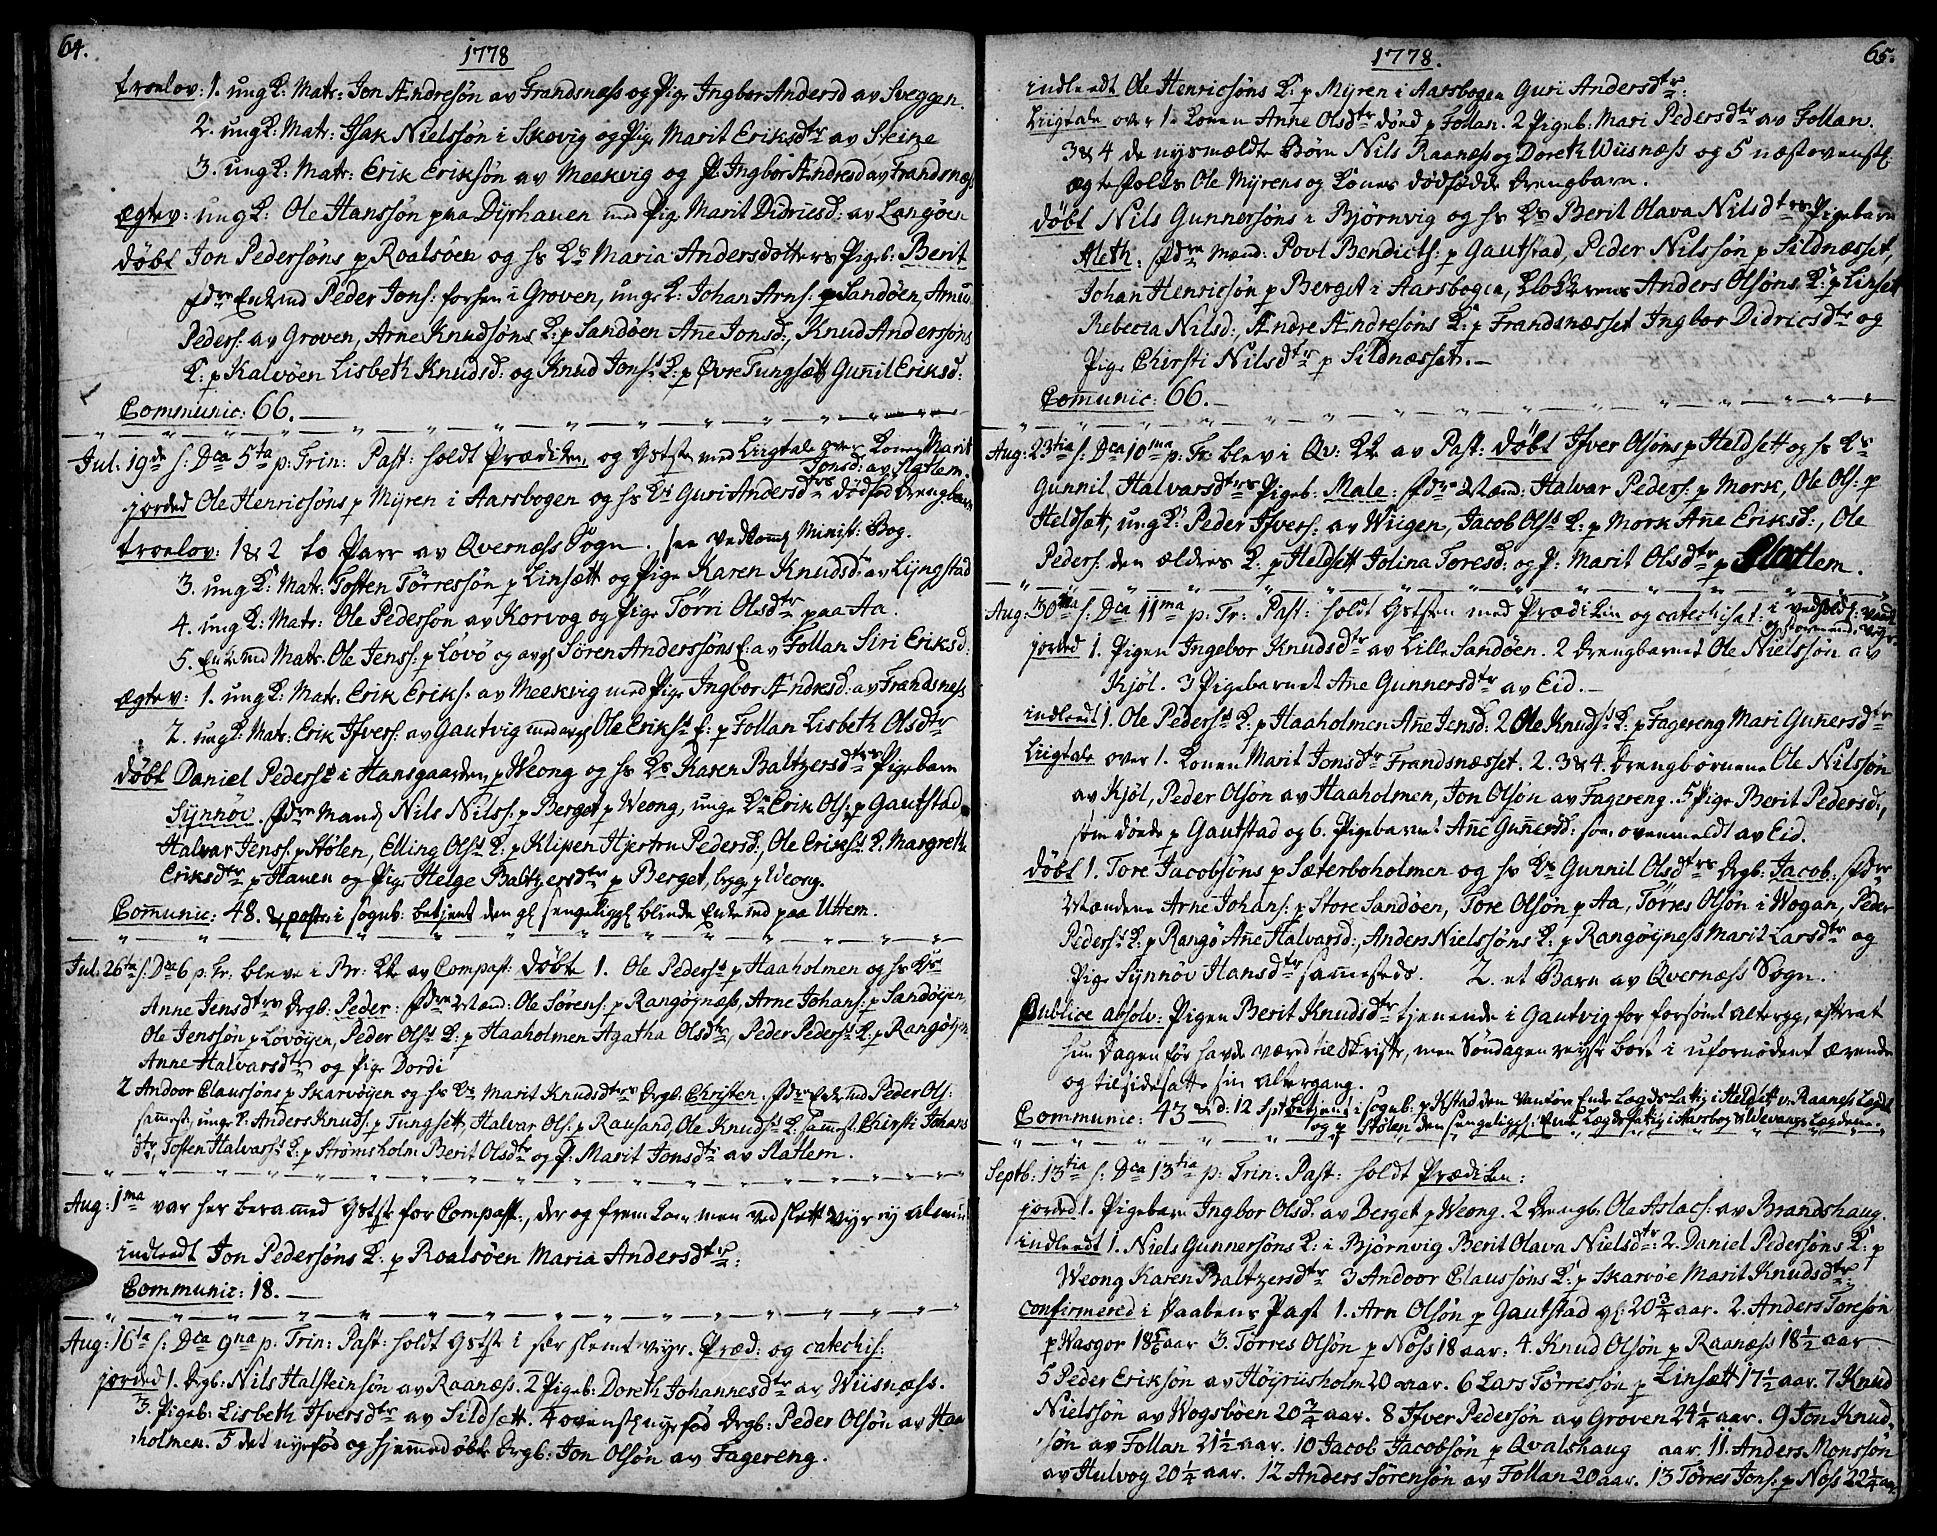 64.
1778
troelov: 1. ungK: Matr: Jon Andresøn av Frandsness og Pige Ingbor Andersd av Sveggen.
2. ungK: Matr: Isak Nielssøn i Skovig og Pige Marit Eriksdtr av Steine
3. ungK: Matr: Erik Eriksøn av Meekvig og P: Ingbor Andresd av Frandsness
Ægtev: ungK: Ole Hanssøn paa Dyrhauen med Pig. Marit Didricsd: av Langøen
døbt Jon Pedersøns p Roalsøen og hs Ks Maria Andersdotters Pigeb: Berit
fdre Enkemd Peder Jons: forhen i Groven, unge K: Johan Arns: p Sandøen, Amu
Peders: av Groven, Arne Knudsøns K: p Sandøen Ane Jonsd:, Knud Anderssøns
K: p Kalvøen Lisbeth Knudsd: og Knud Jons: K: p Øvre Tungsætt Gunil Eriksd:
Communic: 66.
Jul. 19de s: Dca 5ta p: Trin: Past: holdt Prædiken, og Gtste med Liigtale over Konen Marit
Jonsd: av Slatlem.
jorded Ole Henricsøns p Myren i Aarsbogen og hs Ks Guri Andersdtrs dødfød Drengbarn
troelov: 1 & 2 to Parr av Qvernæss Sogn. see vedkomg Minist: Bog.
3. ungK: Matr: Tosten Tørressøn p Linsætt og Pige Karen Knudsd: av Lyngstad
4. ungK: Matr: Ole Pedersøn av Korvog og Pige Tørri Olsdtr paa Aa.
5. Enkemd Matr. Ole Jenss: p Løvø og avg: Søren Anderssøns E: av Follan Siri Eriksd:
Ægtev: 1. ungK: Matr. Erik Eriks: av Meekvig med Pige Ingbor Andresd: av Frandsness
2. ungK: Matr: Erik Ifvers: av Gautvig med avg: Ole Eriks: E: p Follan Lisbeth Olsdtr
døbt Daniel Peders: i Hansgaarden p Weong og hs Ks Karen Baltzersdtrs Pigebarn
Synnøv. fdre Mand Nils Nils: p Berget p Weong, unge K: Erik Ols: p Gautstad
Halvar Jenss: p Stølen, Elling Ols: K: p Klipen Hjertru Pedersd:, Ole Eriks: K: Margrethe
Eriksdtr p Hauen og Pige Helge Baltzersdtr p Berget, beg p Weong.
Communic: 48. & post: i sognb: betjent den gl sengeliggl blinde Enkemd paa Uttem.
Jul. 26de s: Dca 6 p. Tr. bleve i Br: KK av Compast: døbte 1. Ole Peders: p Haaholmen og hs Ks
Anne Jensdtrs Drgb: Peder: fdre Mænd: Ole Sørens: p Rangøynæss, Arne Johans: p Sandøyen,
Ole Jenssøn p Løvøyen, Peder Ols: K: p Haaholmen Agatha Olsdtr, Peder Peders: K: p Rangøyen
Anne Halvarsdtr og Pige Dordi
2 Andoor Claussøns p Skarvøyen og hs Ks Marit Knudsdtrs Drgb: Christen. fdre Enkemd Peder Ols:
sammest, unge K. Anders Knuds: p Tungsett, Halvar Ols: p Rausand, Ole Knuds: K: sammest: Chirsti Johans
dtr, Tosten Halvars: K: p Strømsholm Berit Olsdtr og P: Marit Jonsdtr av Slatlem.
Aug: 1ma var her berammed Gtst for Compast., der og frem kom men ved slett veyr ej alm:
indleedt Jon Pedersøns K: p Roalsøen Maria Andersdtr:
Communic: 18.
Aug: 16ta s: Dca 9na p: Trin: Past: holdt Gtst i før slemt veyr. Præd: og catechis:
jorded 1. Drgb: Nils Halsteinsøn av Raanæss. 2 Pigeb: Doreth Johannesdtr av Wiisnæss.
3. Pigeb: Lisbeth Ifversdtr av Sildsætt. 4 ovenst: nyefød Drgb: Peder Olsøn av Haa
holmen. 5 det nyefød og hjemmedøbte Drgb: Jon Olsøn av Fagereng.
65.
1778.
indleedt Ole Henricsøns K: p Myren i Aarsbogen Guri Andersdtr:
Liigtale over 1. Konen Anne Olsdtr dønd p Follan. 2 Pigeb: Mari Pedersdtr av Follan.
3 & 4 de nysmældte Børn Nils Raanæss og Doreth Wiisnæss og 5 næstovenstl:
ægtefolks Ole Myrens og Kones dødfødde Drengbarn.
døbt Nils Gunnersøns i Bjørnvig og hs Ks Berit Olava Nilsdtrs Pigebarn
Aleth. fdre Mænd: Povl Bendicts: p Gautstad, Peder Nilssøn p Sildnæsset,
Johan Henricsøn p Berget i Aarsbogen, Klokkerens Anders Olsøns K: p Linset
Rebecca Nilsd:, Andre Andresøns K: p Frandsnæsset Ingbor Didricsdtr og
Pige Chirsti Nilsdtr p Sildnæsset.
Comunic: 66.
Aug: 23tia s: Dca 10ma p: Tr: blev i Qv: KK av Past: døbt Ifver Olsøns p Heldsett og hs Ks
Gunnil Halvarsdtrs Pigeb: Male: fdre Mænd: Halvar Peders: p Mork, Ole Ols: p
Heldsætt, ungK: Peder Ifvers: av Wiigen, Jacob Ols: K: p Mork Ane Eriksd:, Ole
Peders: den ældres K: p Heldsett Jolina Toresd: og P: Marit Olsdtr p Slatlem.
Aug: 30ma s: Dca 11ma p: Tr: Past: holdt Gtsten med Prædiken og catechisat: i vedhold:
jorded 1. Pigen Ingebor Knudsdtr av Lille Sandøen. 2 Drengbarnet Ole Nielssøn av
Kjøl. 3 Pigebarnet Ane Gunnersdtr av Eid.
indleedt 1. Ole Peders: K: p Haaholmen Ane Jensd: 2 Ole Knuds: K: p Fagereng Mari Gunersdtr
Liigtale over 1. Konen Marit Jonsdtr Frandsnæsset. 2. 3 & 4. Drengbørnene Ole Nilssøn
av Kjøl, Peder Olsøn av Haaholmen, Jon Olsøn av Fagereng. 5 Pige Berit Pedersd:,
som døde p Gautstad og 6. Pigebarnet Ane Gunersd: som ovenmeldt av Eid.
døbt 1. Tore Jacobsøns p Sæterboholmen og hs Ks Gunnil Olsdtrs Drgb: Jacob: fdre
Mændene Arne Johans: p Store Sandøen, Tore Olsøn p Aa, Tørres Olsøn i Wogan, Peder
Peders: K: p Rangø Ane Halvarsd:, Anders Nielssøns K: p Rangøyness Marit Larsdtr og
Pige Synnøv Hansdtr sammesteds. 2. et Barn av Qvernæss Sogn.
Publice absolv: Pigen Berit Knudsdtr tjenende i Gautvig for forsømt alterg, efterat
hun dagen før havde været til skrifte, men Søndagen reyste bort i ufornødent ærende
og tilsidesatte sin Altergang.
Communic: 43 & d: 12 Spt betjent i sognb: p Ystad den vanføre Enke Lagds Lattig i Heldsett & Raaness Lægd
og p Stølen den sengeliggl: Lagdsfattig i Aarsbog & Ildevangs Lægdene
Septb: 13tia s: Dca 13tia p: Trin: Past: holdt Prædiken:
jorded 1. Pigebarn Ingbor Olsd: av Berget p Weong. 2 Drengb: Ole Aslacs: av Brandshaug.
indleedt 1. Niels Gunnersøns K: i Bjørnvig Berit Olava Nielsdtr: 2. Daniel Pedersøns K: p
Weong Karen Baltzersdtr 3 Andoor Claussøns K: p Skarvøe Marit Knudsdtr:
confirmered i Daabens Pagt 1. Arn Olsøn p Gautstad gl: 20 3/4 aar. 2. Anders Toresøn
p Wasgor 18 aar 3. Tørres Olsøn p Nøss 18 aar: 4. Knud Olsøn p Raanæss 18 1/2 aar
5 Peder Eriksøn av Høyriisholm 20 aar. 6 Lars Tørressøn p Linsætt 17 1/2 aar. 7 Knud
Nielssøn av Wogsbøen 20 3/4 aar. 8 Ifver Pedersøn av Groven 24 1/4 aar. 9 Jon Knud-
søn av Follan 21 1/2 aar. 10 Jacob Jacobsøn p Qvalshaug aar. 11. Anders Monssøn
av Hulvog 20 1/4 aar. 12 Anders Sørensøn av Follan 20 aar. 13 Tørres Jons: p Nøss 22 1/4 aar.